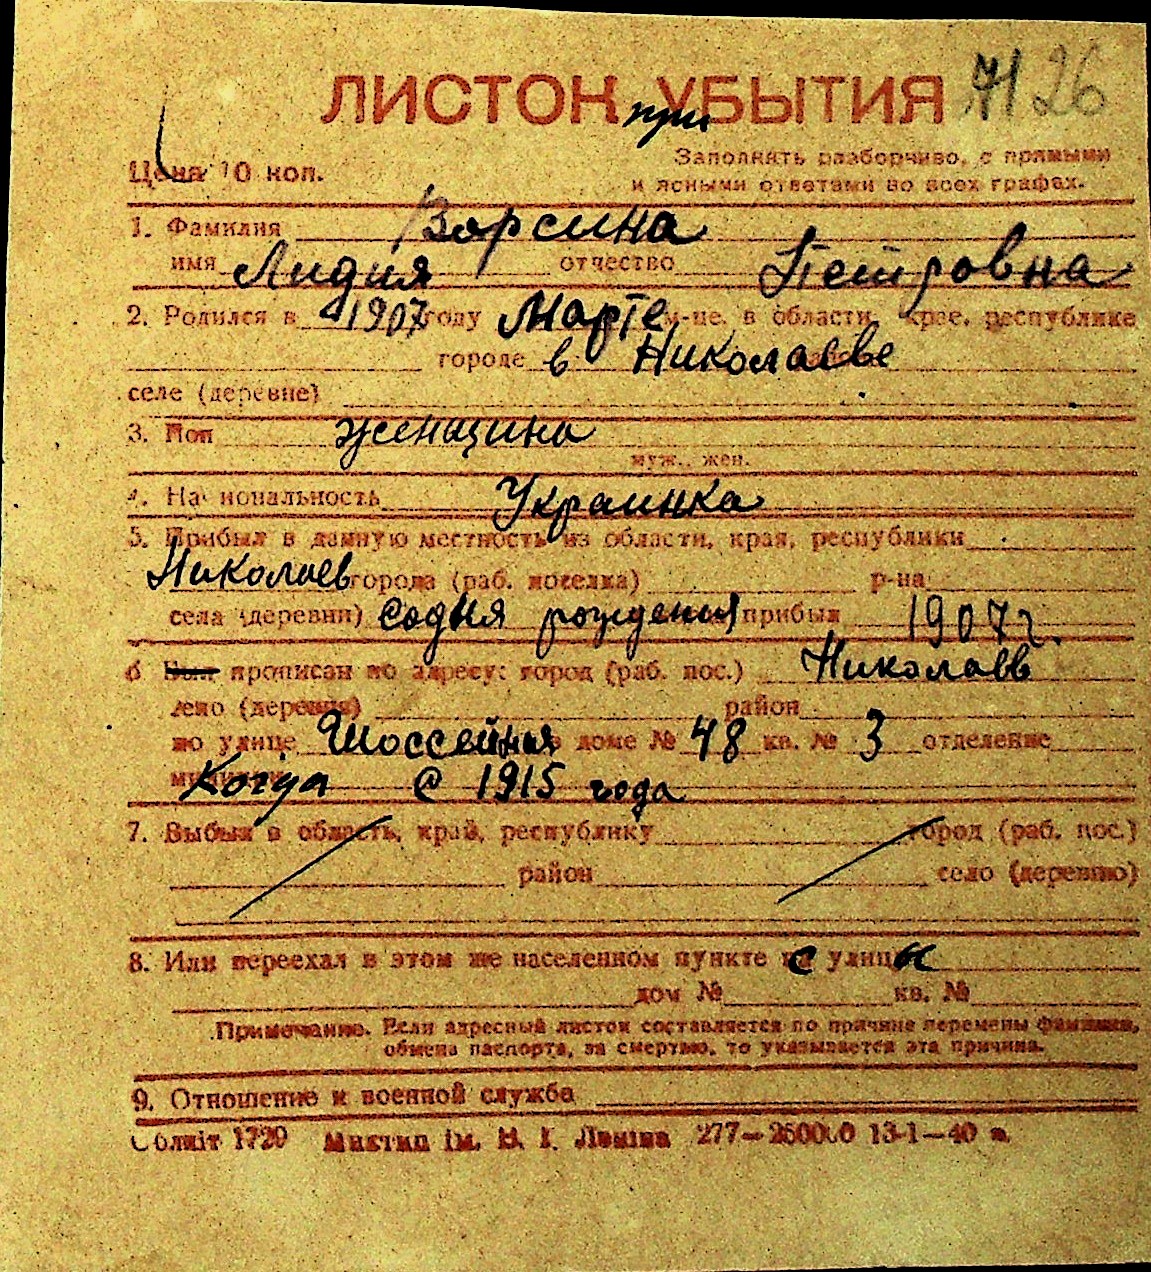 ЛИСТОК УБЫТИЯ 7126
при
Цена 10 коп. Заполнять разборчиво, с прямыми
и ясными ответами во всех графах.
1. Фамилия Ворсина
имя Лидия отчество Петровна
2. Родился в 1907 году Марте м-це, в области, крае, республике
городе в Николаеве
селе (деревне)
3. Пол женщина
муж., жен.
4. Национальность Украинка
5. Прибыл в данную местность из области, края, республики
Николаев города (раб. поселка) р-на
села (деревни) со дня рождения прибыл 1907 г.
6 Был прописан по адресу: город (раб. пос.) Николаев
село (деревня) район
по улице Шоссейная доме № 48 кв. № 3 отделение
милиции Когда С 1915 года
7. Выбыл в область, край, республику город (раб. пос.)
район село (деревню)
8. Или переехал в этом же населенном пункте с улицы
дом № кв. №
Примечание. Если адресный листок составляется по причине перемены фамилии,
обмена паспорта, за смертью, то указывается эта причина.
9. Отношение к военной службе
Облліт 1720 Миктип ім. В. І. Леніна 277—260000 13-1—40 в.